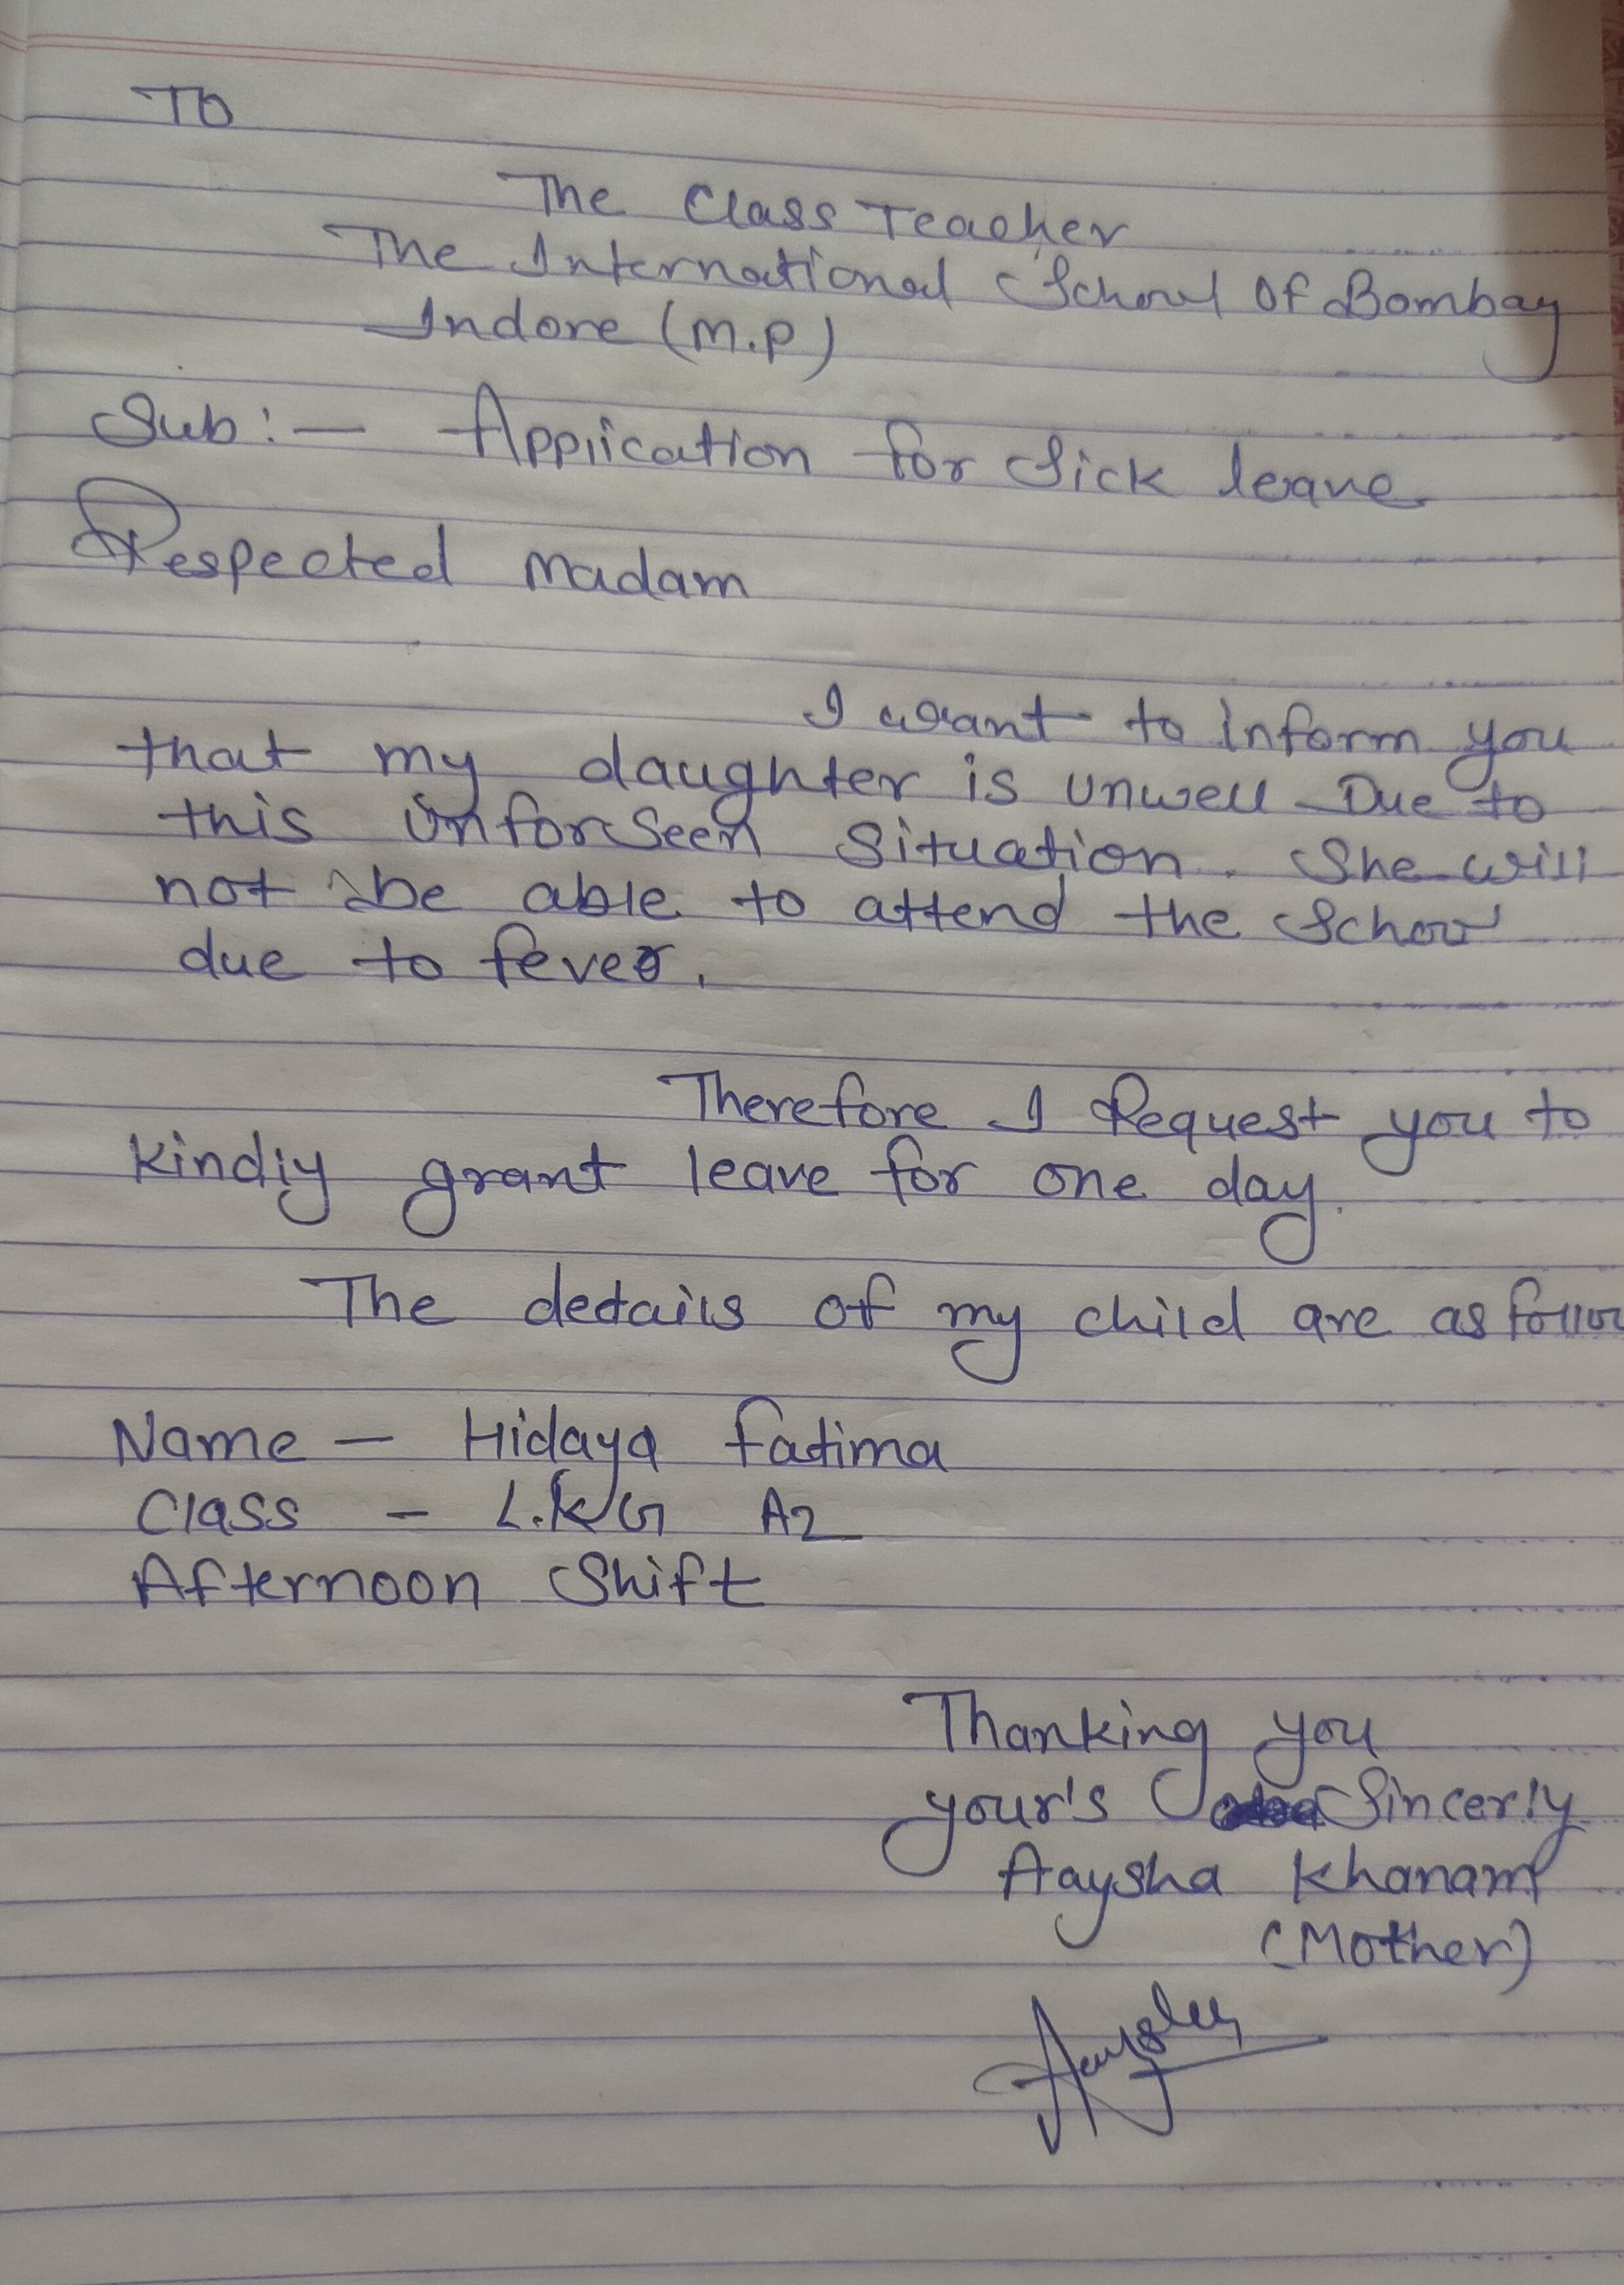 To
The Class Teacher
The International School Of Bombay
Indore (M.P)
Sub:- Application for Sick leave
Respected Madam
I want to inform you
that my daughter is unwell Due to
this unforseen situation. She will
not be able to attend the School
due to fever.
Therefore I Request you to
kindly grant leave for one day.
The details of my child are as follow
Name - Hidaya Fatima
Class - L.KG A2
Afternoon Shift
Thanking you
your's Sincerly
Aaysha Khanam
(Mother)
Aaysha